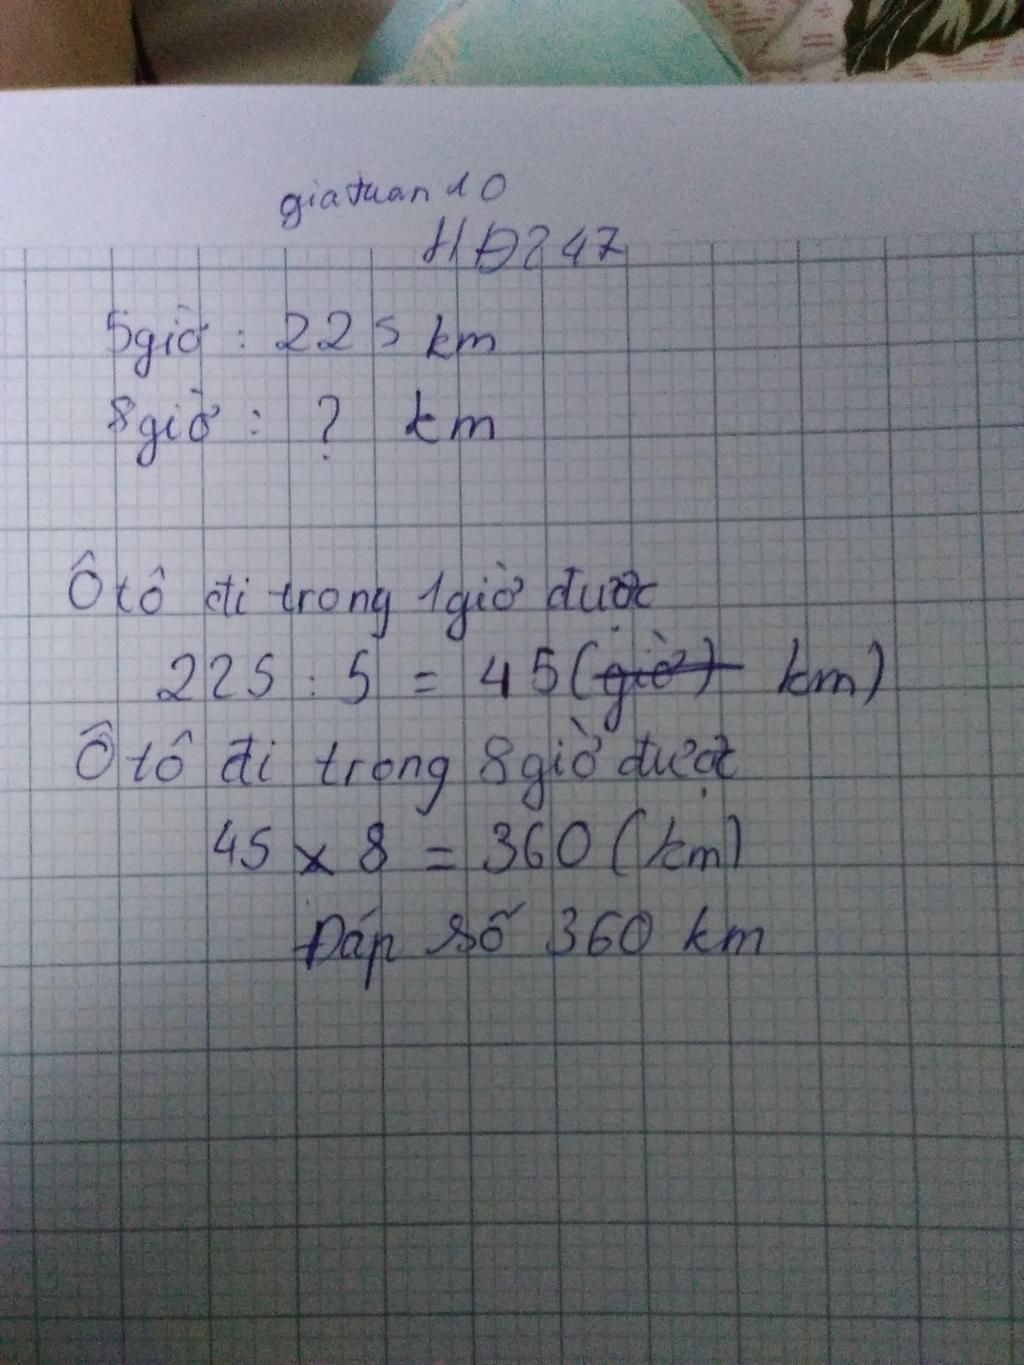 giatuan10
HĐ247
5giờ : 225 km
8giờ : ? km
Ô tô đi trong 1giờ được
225 : 5 = 45 (giờ) km)
Ô tô đi trong 8giờ được
45 x 8 = 360 (km)
Đáp số 360 km